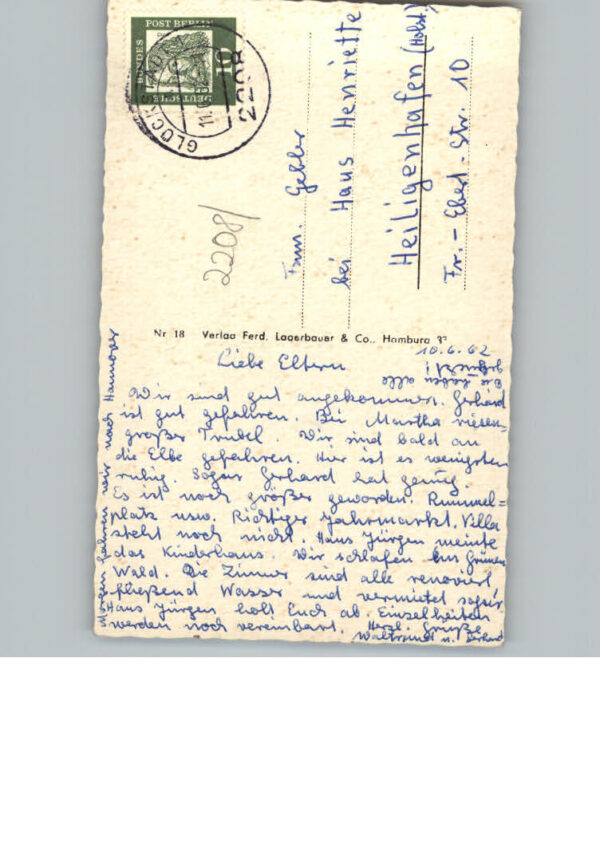 DEUTSCHE BUNDESPOST BERLIN
10
GLÜCKSTADT
11.
2208
Fam. Gebler
bei Haus Henriette
Heiligenhafen (Holst.)
Fr.-Ebert-Str. 10
2208/
Nr 18 Verlag Ferd. Lagerbauer & Co., Hamburg
10.6.62
Liebe Eltern
Wir sind gut angekommen. Gerhard
ist gut gefahren. Bei Martha riesen-
großer Trubel. Wir sind bald an
die Elbe gefahren. Hier ist es wenigsten
ruhig. Sogar Gerhard hat genug.
Es ist noch größer geworden. Rummel=
platz usw. Richtiger Jahrmarkt. Villa
steht noch nicht. Hans Jürgen meinte
das Kinderhaus. Wir schlafen im Grünen
Wald. Die Zimmer sind alle renoviert
fließend Wasser und vermietet
Hans Jürgen holt Euch ab. Einzelheiten
werden noch vereinbart. Herzl. Grüße
Waltraud u. Gerhard
Morgen fahren wir nach Hannover
Sie haben alle